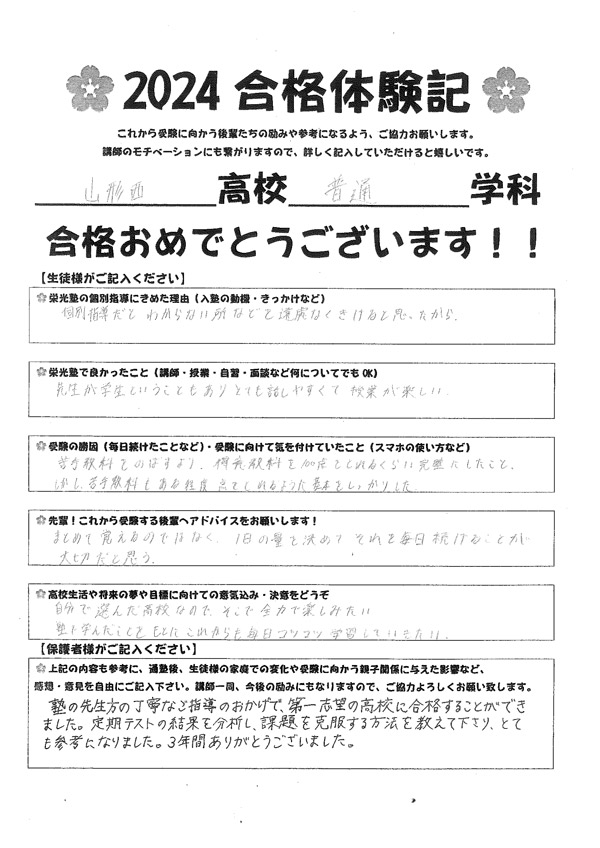 2024 合格体験記
これから受験に向かう後輩たちの励みや参考になるよう、ご協力お願いします。
講師のモチベーションにも繋がりますので、詳しく記入していただけると嬉しいです。
山形西 高校 普通 学科
合格おめでとうございます！！
【生徒様がご記入ください】
栄光塾の個別指導にきめた理由（入塾の動機・きっかけなど）
個別指導だと わからない所などを遠慮なくきけると思ったから.
栄光塾で良かったこと（講師・授業・自習・面談など何についてでもOK）
先生が学生ということもあり とても話しやすくて 授業が楽しい.
受験の勝因（毎日続けたことなど）・受験に向けて気を付けていたこと（スマホの使い方など）
苦手教科をのばすより、得意教科を100点とれるくらい完璧にしたこと、
しかし、苦手教科もある程度 点をとれるように基本をしっかりした
先輩！これから受験する後輩へアドバイスをお願いします！
まとめて覚えるのではなく、1日の量を決めて それを毎日続けることが
大切だと思う.
高校生活や将来の夢や目標に向けての意気込み・決意をどうぞ
自分で選んだ高校なので、そこで全力で楽しみたい
塾で学んだことをもとに これからも毎日コツコツ学習していきたい.
【保護者様がご記入ください】
上記の内容も参考に、通塾後、生徒様の家庭での変化や受験に向かう親子関係に与えた影響など、
感想・意見を自由にご記入下さい。講師一同、今後の励みにもなりますので、ご協力よろしくお願い致します。
塾の先生方の丁寧なご指導のおかげで、第一志望の高校に合格することができ
ました。定期テストの結果を分析し、課題を克服する方法を教えて下さり、とて
も参考になりました。3年間ありがとうございました。